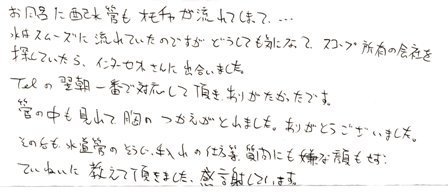 お風呂に配水管もオモチャが流れてしまって、…
水はスムーズに流れていたのですがどうしても気になって、スコープ所有の会社を
探していたら、インターセオさんに出会いました。
Telの翌朝一番で対応して頂きありがたかったです。
管の中も見れて胸のつかえがとれました。ありがとうございました。
その后も水道管のそうじ、手入れの仕方等、質問にも嫌な顔もせず
ていねいに教えて頂きました。感謝しています。